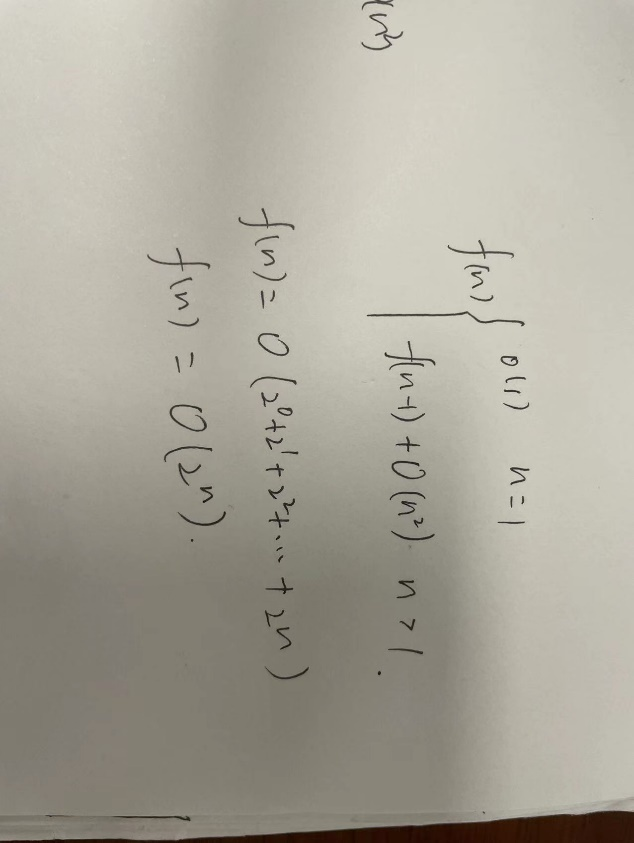 f(n) { O(1) n=1
f(n-1)+O(n²) n>1.
f(n) = O(2⁰+2¹+2²+...+2n)
f(n) = O(2ⁿ).